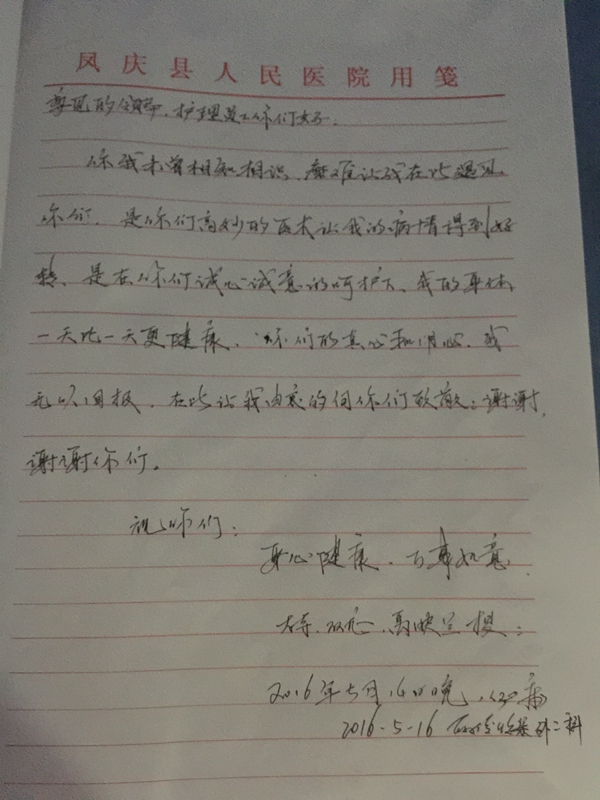 凤庆县人民医院用笺
尊敬的领导、护理员工你们好
你我未曾相知相识、病难让我在此遇见
你们、是你们高妙的医术让我的病情得到好
转、是在你们诚心诚意的呵护下、我的身体
一天比一天更健康、你们的真心和用心、我
无以回报、在此让我由衷的向你们致敬：谢谢，
谢谢你们。
祝你们：
身心健康、百事如意
2016年5月16日晚、
2016-5-16 外二科